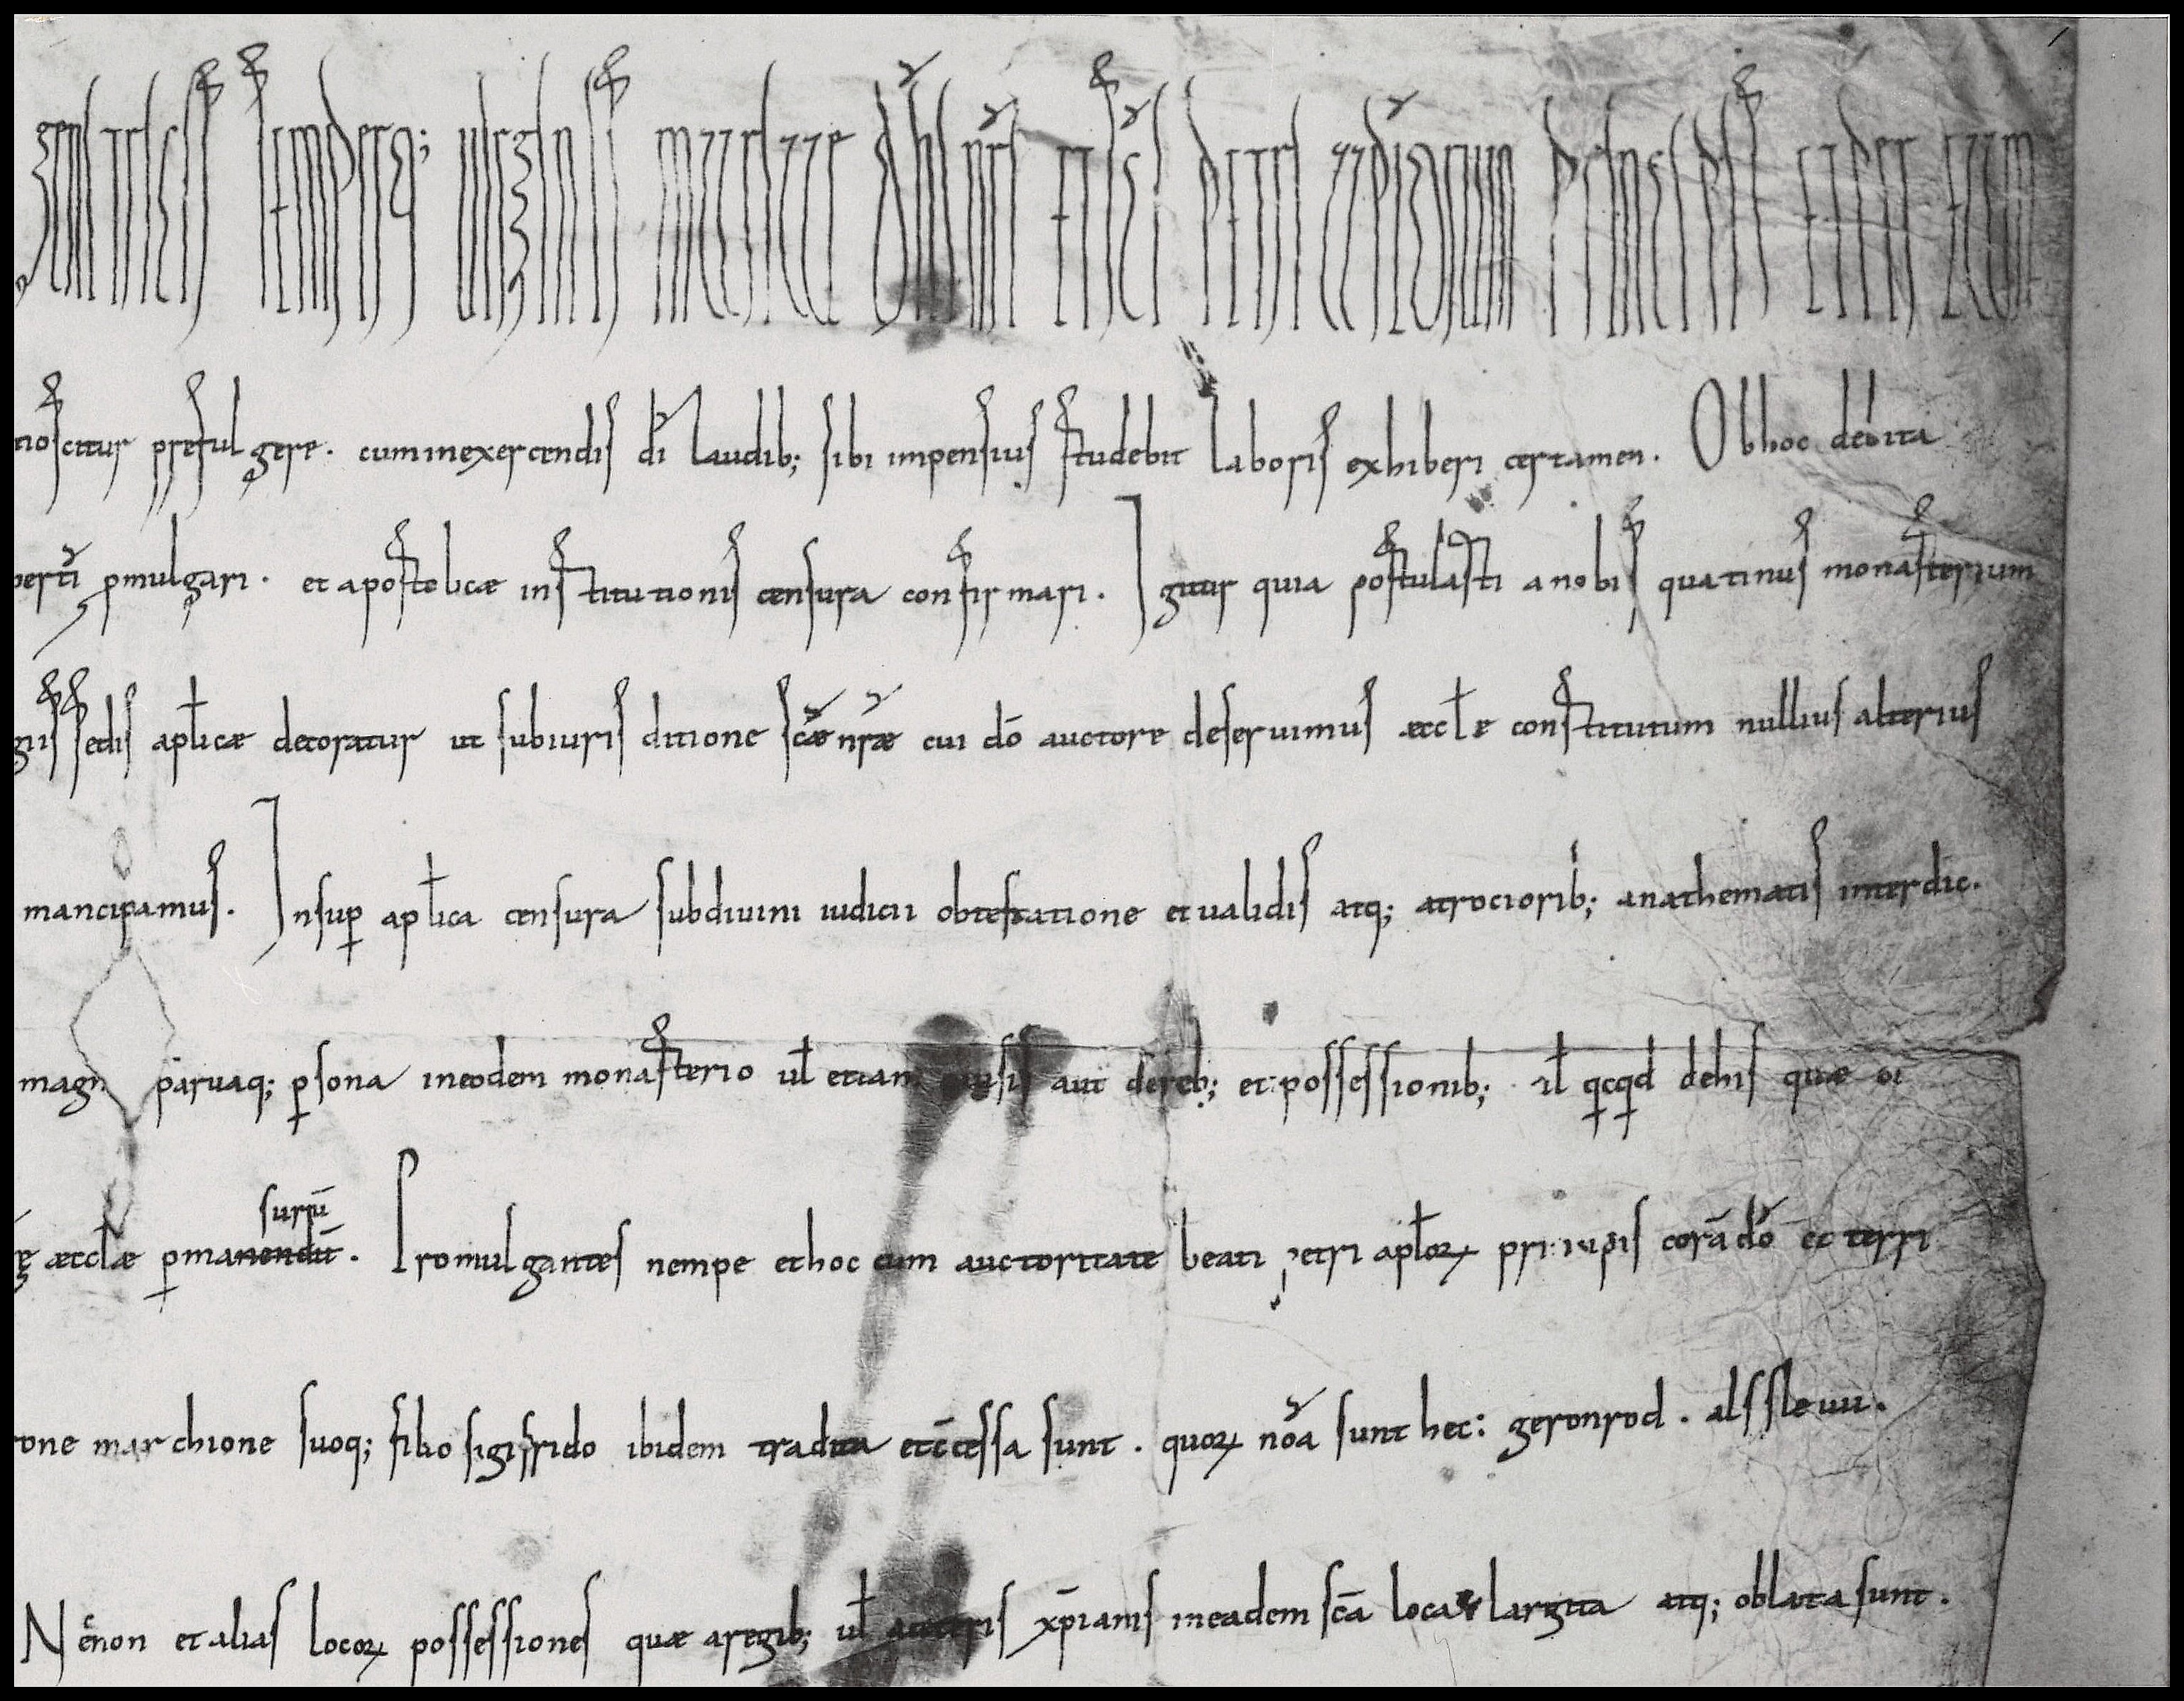 genitricis semperq; uirginis mariae dñi nr̃i et sc̃i petri ap̃torum principis et per eum
noscitur prefulgere. cum in exercendis dī laudib; sibi impensius studebit laboris exhiberi certamen. Ob hoc debita
p̱mulgari. et apostolicæ institutionis censura confirmari. Igitur quia postulasti a nobis quatinus monasterium
sedis apl̄icæ decoratur ut sub iuris ditione sc̄æ nr̄æ cui dō auctore deseruimus æccl̄e constitutum nullius alterius
mancipamus. Insup̱ apl̄ica censura sub diuini iudicii obtestatione et ualidis atq; atrociorib; anathematis interdic.
magn paruaq; p̱sona in eodem monasterio ul̄ etiam aut de reb; et possessionib; ul̄ qcqd de his quæ ei
æccl̄æ p̱manendū surū. Promulgantes nempe et hoc cum auctoritate beati petri apl̄oꝝ principis corā dō et terri
marchione suoq; filio sigifrido ibidem tradita et c̄cessa sunt. quoꝝ nōa sunt hec: geronrod. alssleuu.
Necnon et alias locoꝝ possessiones quæ a regib; ul̄ xp̄ianis in eadem sc̄a loca largita atq; oblata sunt.